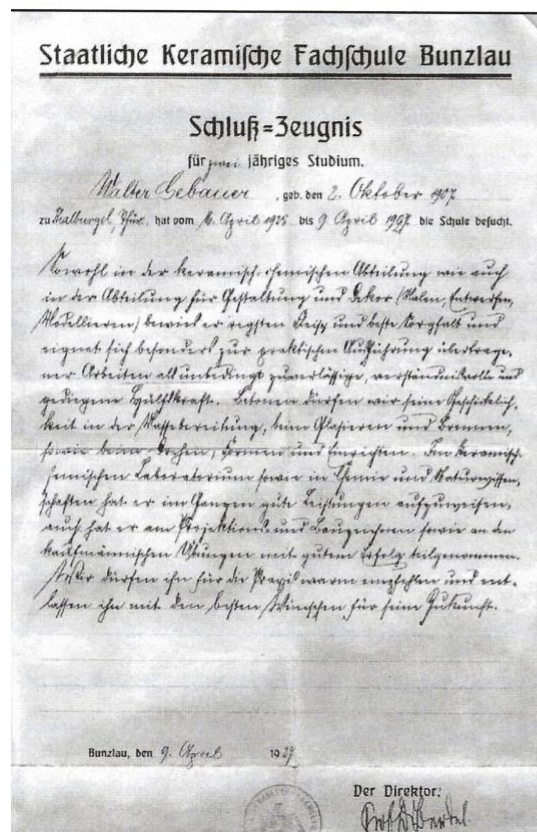 Staatliche Keramische Fachschule Bunzlau
Schluß=Zeugnis
für zwei jähriges Studium.
Walter Gebauer, geb. den 2. Oktober 1907
zu Thalbürgel, Thür. hat vom 16. April 1925 bis 9 April 1927 die Schule besucht.
Sowohl in der keramisch-chemischen Abteilung wie auch
in der Abteilung für Gestaltung und Dekor (Malen, Entwerfen,
Modellieren) bewies er regsten Fleiß und beste Sorgfalt und
eignet sich besonders zur praktischen Ausführung übertrage-
ner Arbeiten als unbedingt zuverlässige, verständnisvolle und
gediegene Hülfskraft. Betonen dürfen wir seine Geschicklich-
keit in der Massebereitung, beim Glasieren und Brennen,
sowie beim Drehen, Formen und Einrichten. Im keramisch-
chemischen Laboratorium sowie in Chemie und Naturwissen-
schaften hat er im Ganzen gute Leistungen aufzuweisen,
auch hat er am Projektions und Bauzeichnen sowie an den
kaufmännischen Übungen mit gutem Erfolg teilgenommen.
Wir dürfen ihn für die Praxis warm empfehlen und ent-
lassen ihn mit den besten Wünschen für seine Zukunft.
Bunzlau, den 9. April 1927
Der Direktor: